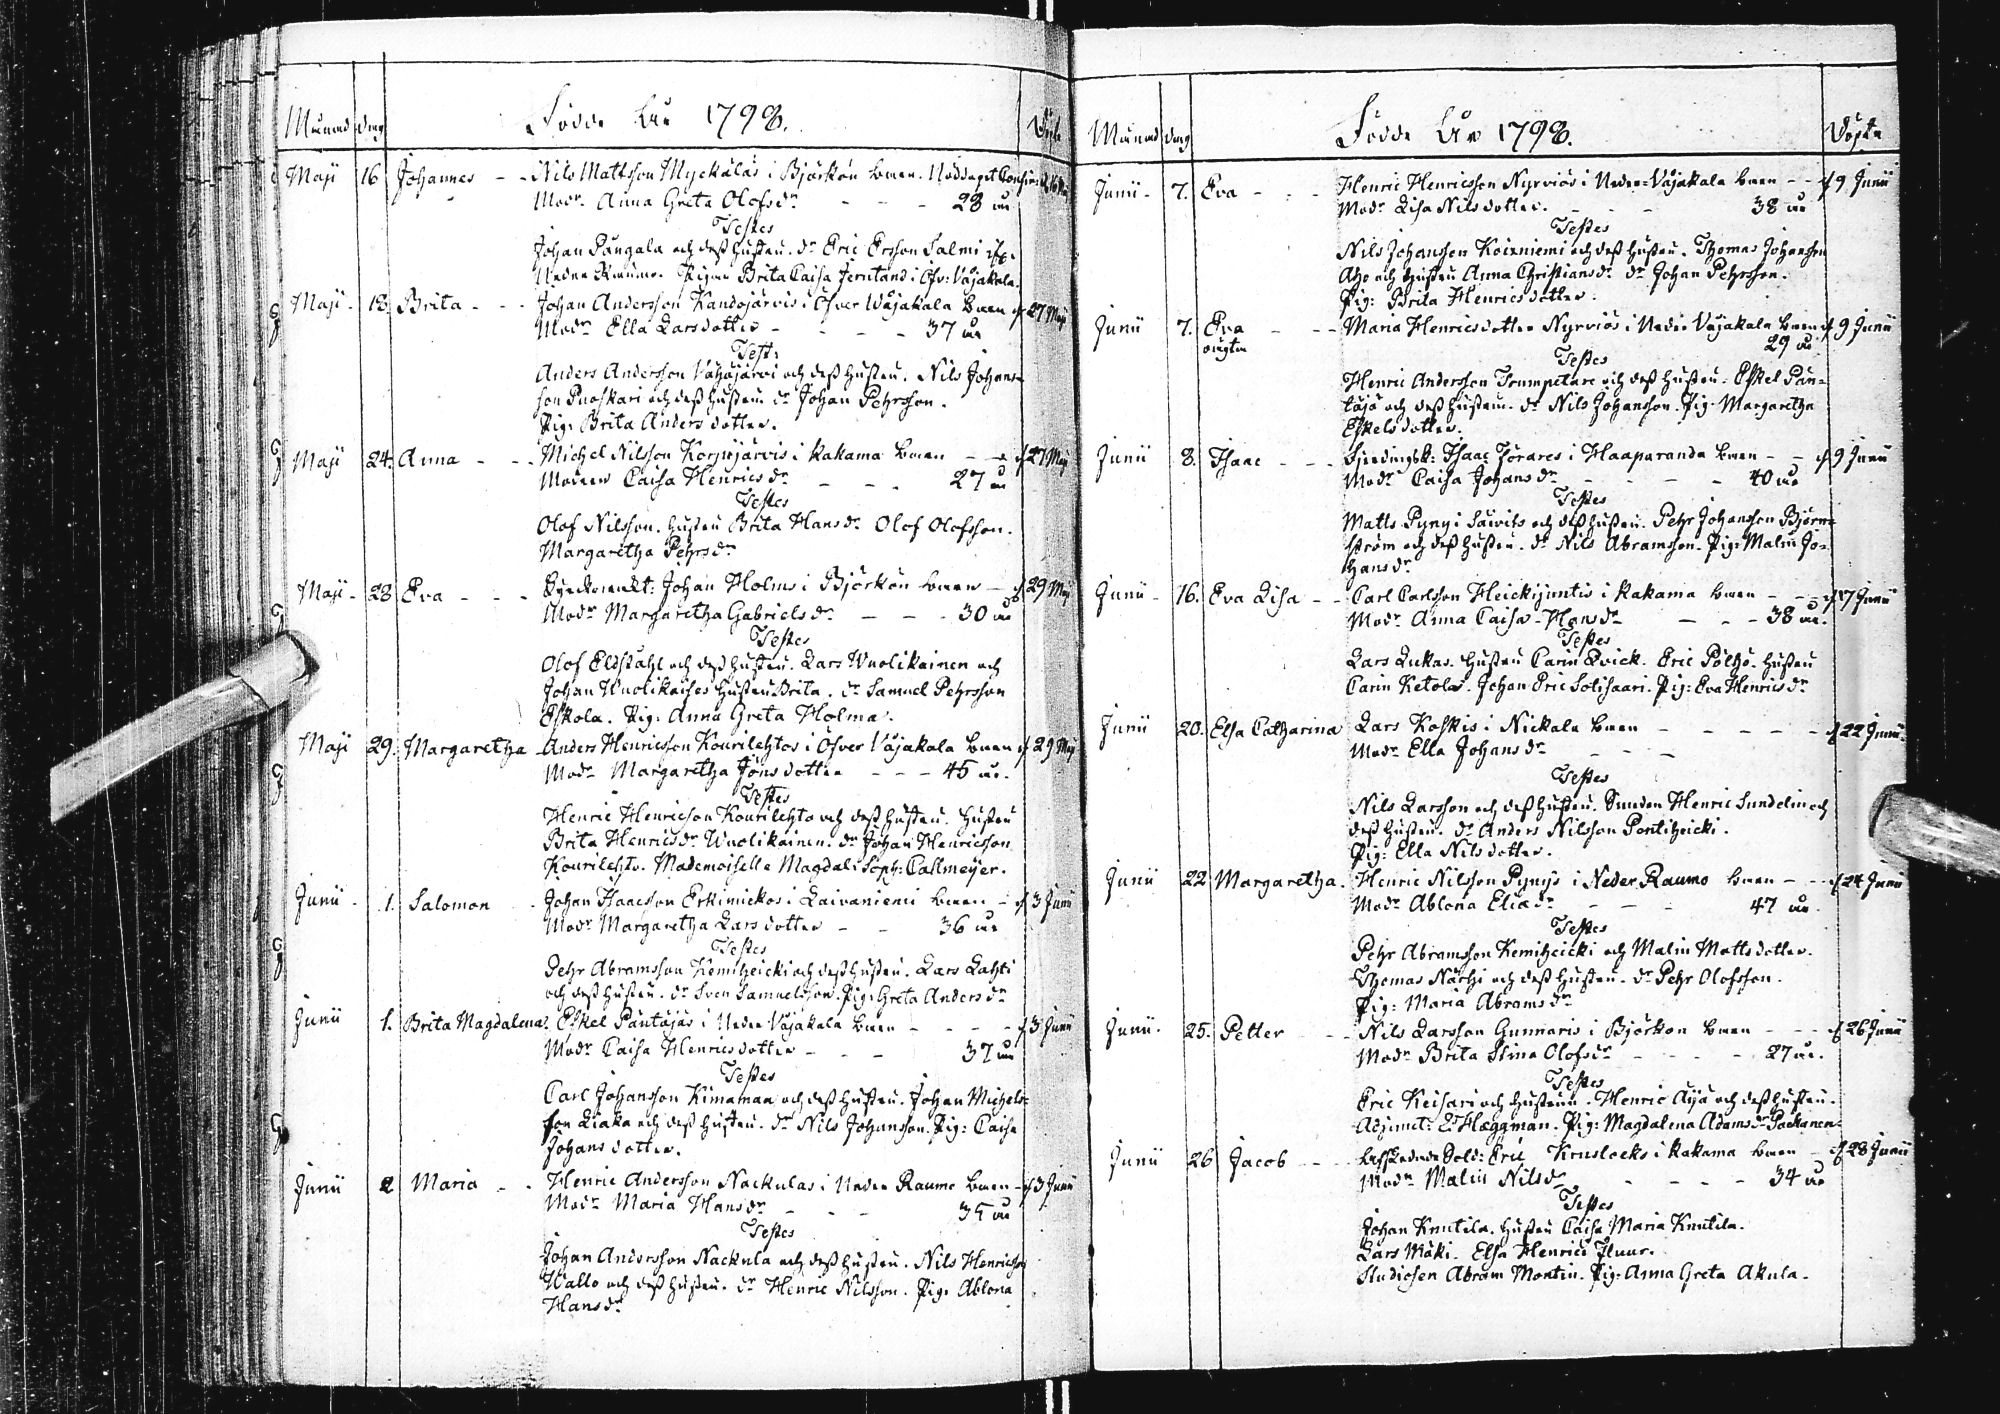 Månad dag Födde År 1798. Döpte
Maji 16 Johannes - - Nils Mattsson Myckälas i Björkön barn. Nöddopet Confirm: d. 16 Maj
Modr. Anna Greta Olofsdr - - - 28 år
Testes
Johan Pångala och dess hustru. dr Eric Ersson Salmi
Nedre Raumo. Pigan Brita Caisa Jerntand i Ofv: Wåjakala.
Maji - 18 Brita - - - Johan Andersson Kandojärvis i Öfver Wåjakala barn d 27 Maji
Modr Ella Larsdotter - - - 37 år
Test:
Anders Andersson Vähäjärvi och dess hustru. Nils Johans-
son Puoskari och dess hustru dr Johan Pehrsson.
Pig: Brita Andersdotter.
Maji 24. Anna - - - Michel Nilsson Korpijärvis i Kakama barn - - d 27 Maji
Modren Caisa Henricsdr - - - 27 år
Testes
Olof Nilsson. hustru Brita Hansdr Olof Olofsson.
Margaretha Pehrsdr
Maji - 28 Eva - - - Johan Holms i Björkön barn - d 29 Maji
Modr Margaretha Gabrielsdr - - - 30 år
Testes
Olof Eldståhl och dess hustru. Lars Wuolikainen och
Johan Wuolikaises hustru Brita. dr Samuel Pehrsson
Eskola. Pig: Anna Greta Holma.
Maji 29. Margaretha - Anders Henricsson Kourilehtos i Öfver Våjakala barn d 29 Maj
Modr Margaretha Jönsdotter - - - 45 år.
Testes
Henric Henricson Kourilehto och dess hustru. Hustru
Brita Henricsdr Wuolikainen. dr Johan Henricsson
Kourilehto. Mademoiselle Magdal: Soph: Callmeyer.
Junii - 1. Salomon - Johan Isaacson Erkimickos i Laivaniemi barn - d 3 Junii
Modr Margaretha Larsdotter - - 36 år
Testes
Pehr Abramsson Kemiheicki och dess hustru. Lars Lahti
och dess hustru. dr Sven Samuelsson. Pig: Greta Andersdr
Junii 1. Brita Magdalena. Eskel Päntäjäs i Neder Våjakala barn - - - - d 3 Junii
Modr Caisa Henricsdotter - - - 37 år
Testes
Carl Johansson Kimamaa och dess hustru. Johan Michels-
son Liaka och dess hustru. dr Nils Johansson. Pig: Caisa
Johansdotter.
Junii 2 Maria - - Henric Andersson Nackulas i Neder Raumo barn - d 3 Junii
Modr Maria Hansdr - - - 35 år
Testes
Johan Andersson Nackula och dess hustru. Nils Henricsson
Wallo och dess hustru. dr Henric Nilsson. Pig: Ablona
Hansdr
Månad dag Födde År 1798. Döpte
Junii - 7. Eva - - - Henric Henricsson Nyrviös i Neder-Våjakala barn - - d 9 Junii
Modr Lisa Nilsdotter. - - - 38 år
Testes
Nils Johansson Koivniemi och dess hustru. Thomas Johansson
Aho och hustru Anna Christiansdr dr Johan Pehrsson.
Pig: Brita Henricsdotter.
Junii 7. Eva oägta - - Maria Henricsdotter Nyrviös i Neder Våjakala barn d 9 Junii
29 år
Testes
Henric Andersson Trumpetare och dess hustru. Eskel Pän-
täjä och dess hustru. dr Nils Johansson. Pig: Margaretha
Eskelsdotter.
Junii 8. Isaac - - - Isaac Törares i Haaparanda barn - - d 9 Junii
Modr Caisa Johansdr - - - - 40 år
Testes
Matts Pyny i Säivits och dess hustru. Pehr Johansson Björn-
ström och dess hustru. dr Nils Abramsson. Pig: Malin Jo-
hansdr
Junii - 16. Eva Lisa - - Carl Carlsson Heickijuntis i Kakama barn - - - d 17 Junii
Modr Anna Caisa Hansdr - - - 38 år.
Testes
Lars Lukas. Hustru Carin Qvick. Eric Pölhö. Hustru
Carin Ketola. Johan Eric Solisaari. Pig: Eva Henricsdr
Junii 20. Elsa Catharina Lars Koskis i Nickala barn - - - - - d 22 Junii
Modr Ella Johansdr - - -
Testes
Nils Larsson och dess hustru. Henric Sundelin och
dess hustru. dr Anders Nilsson Pontiheicki.
Pig: Ella Nilsdotter.
Junii 22 Margaretha. Henric Nilsson Pynys i Neder Raumo barn - - d 24 Junii
Modr Ablona Eliædr - - - 47 år.
Testes
Pehr Abramsson Kemiheicki och Malin Mattsdotter.
Thomas Närhi och dess hustru. dr Pehr Olofsson.
Pig: Maria Abramsdr
Junii. 25. Petter - - Nils Larsson Gunnaris i Björkön barn - - - d 26 Junii
Modr Brita Stina Olofsdr - - - - 27 år.
Testes
Eric Keisari och hustrun. Henric Äijä och dess hustru.
Adjunct: Hæggman. Pig: Magdalena Adamsdr Packanen.
Junii 26 Jacob - - - Sold: Eric Knusloeks i Kakama barn - d 28 Junii
Modr Malin Nilsdr - - - - 34 år
Testes
Johan Knutila. hustru Caisa Maria Knutila.
Lars Mäki. Elsa Henrics
Studiosen Abram Montin. Pig: Anna Greta Akula.